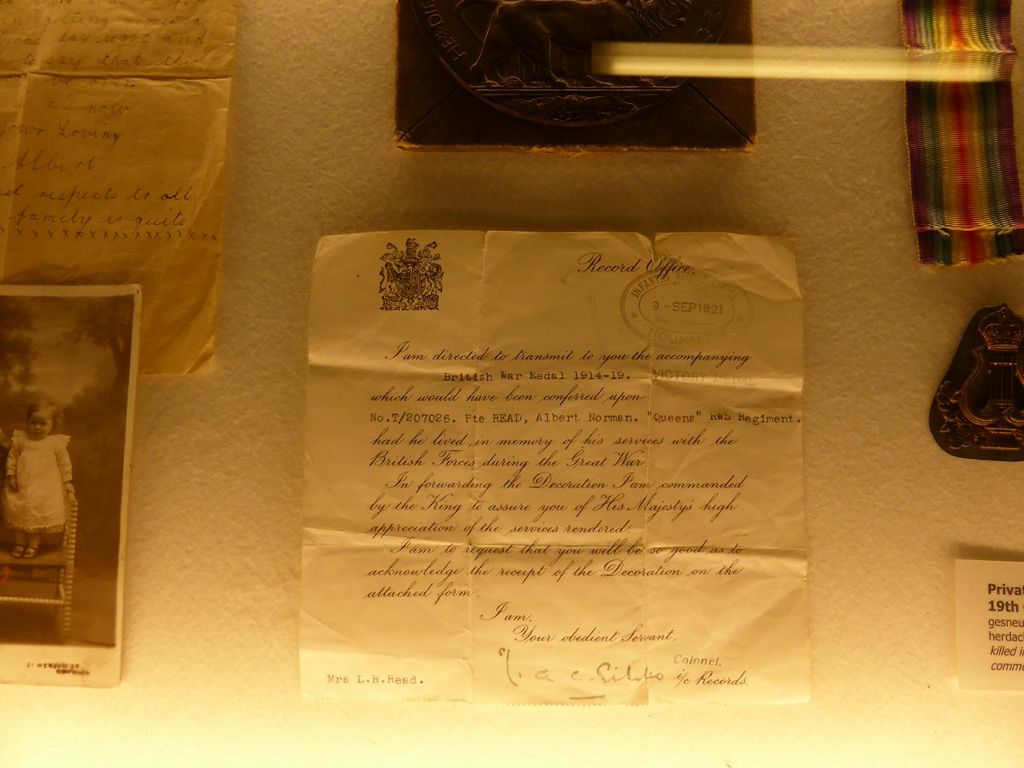 in getting
say right and
to say that this
all now
your Loving
Albert
respects to all
family is quite
xxxxxxxxxxxxxxxx
HE DIE
Record Office,
INFANTRY
9-SEP1921
HOUNSL
I am directed to transmit to you the accompanying
British War Medal 1914-19. VICTORY MEDAL
which would have been conferred upon
No.T/207026. Pte READ, Albert Norman. "Queens" RWS Regiment.
had he lived in memory of his services with the
British Forces during the Great War.
In forwarding the Decoration I am commanded
by the King to assure you of His Majesty's high
appreciation of the services rendered.
I am to request that you will be so good as to
acknowledge the receipt of the Decoration on the
attached form.
I am,
Your obedient Servant,
Colonel,
i/c Records.
Mrs L.R.Read.
Privat
19th
gesneu
herdac
killed i
comme